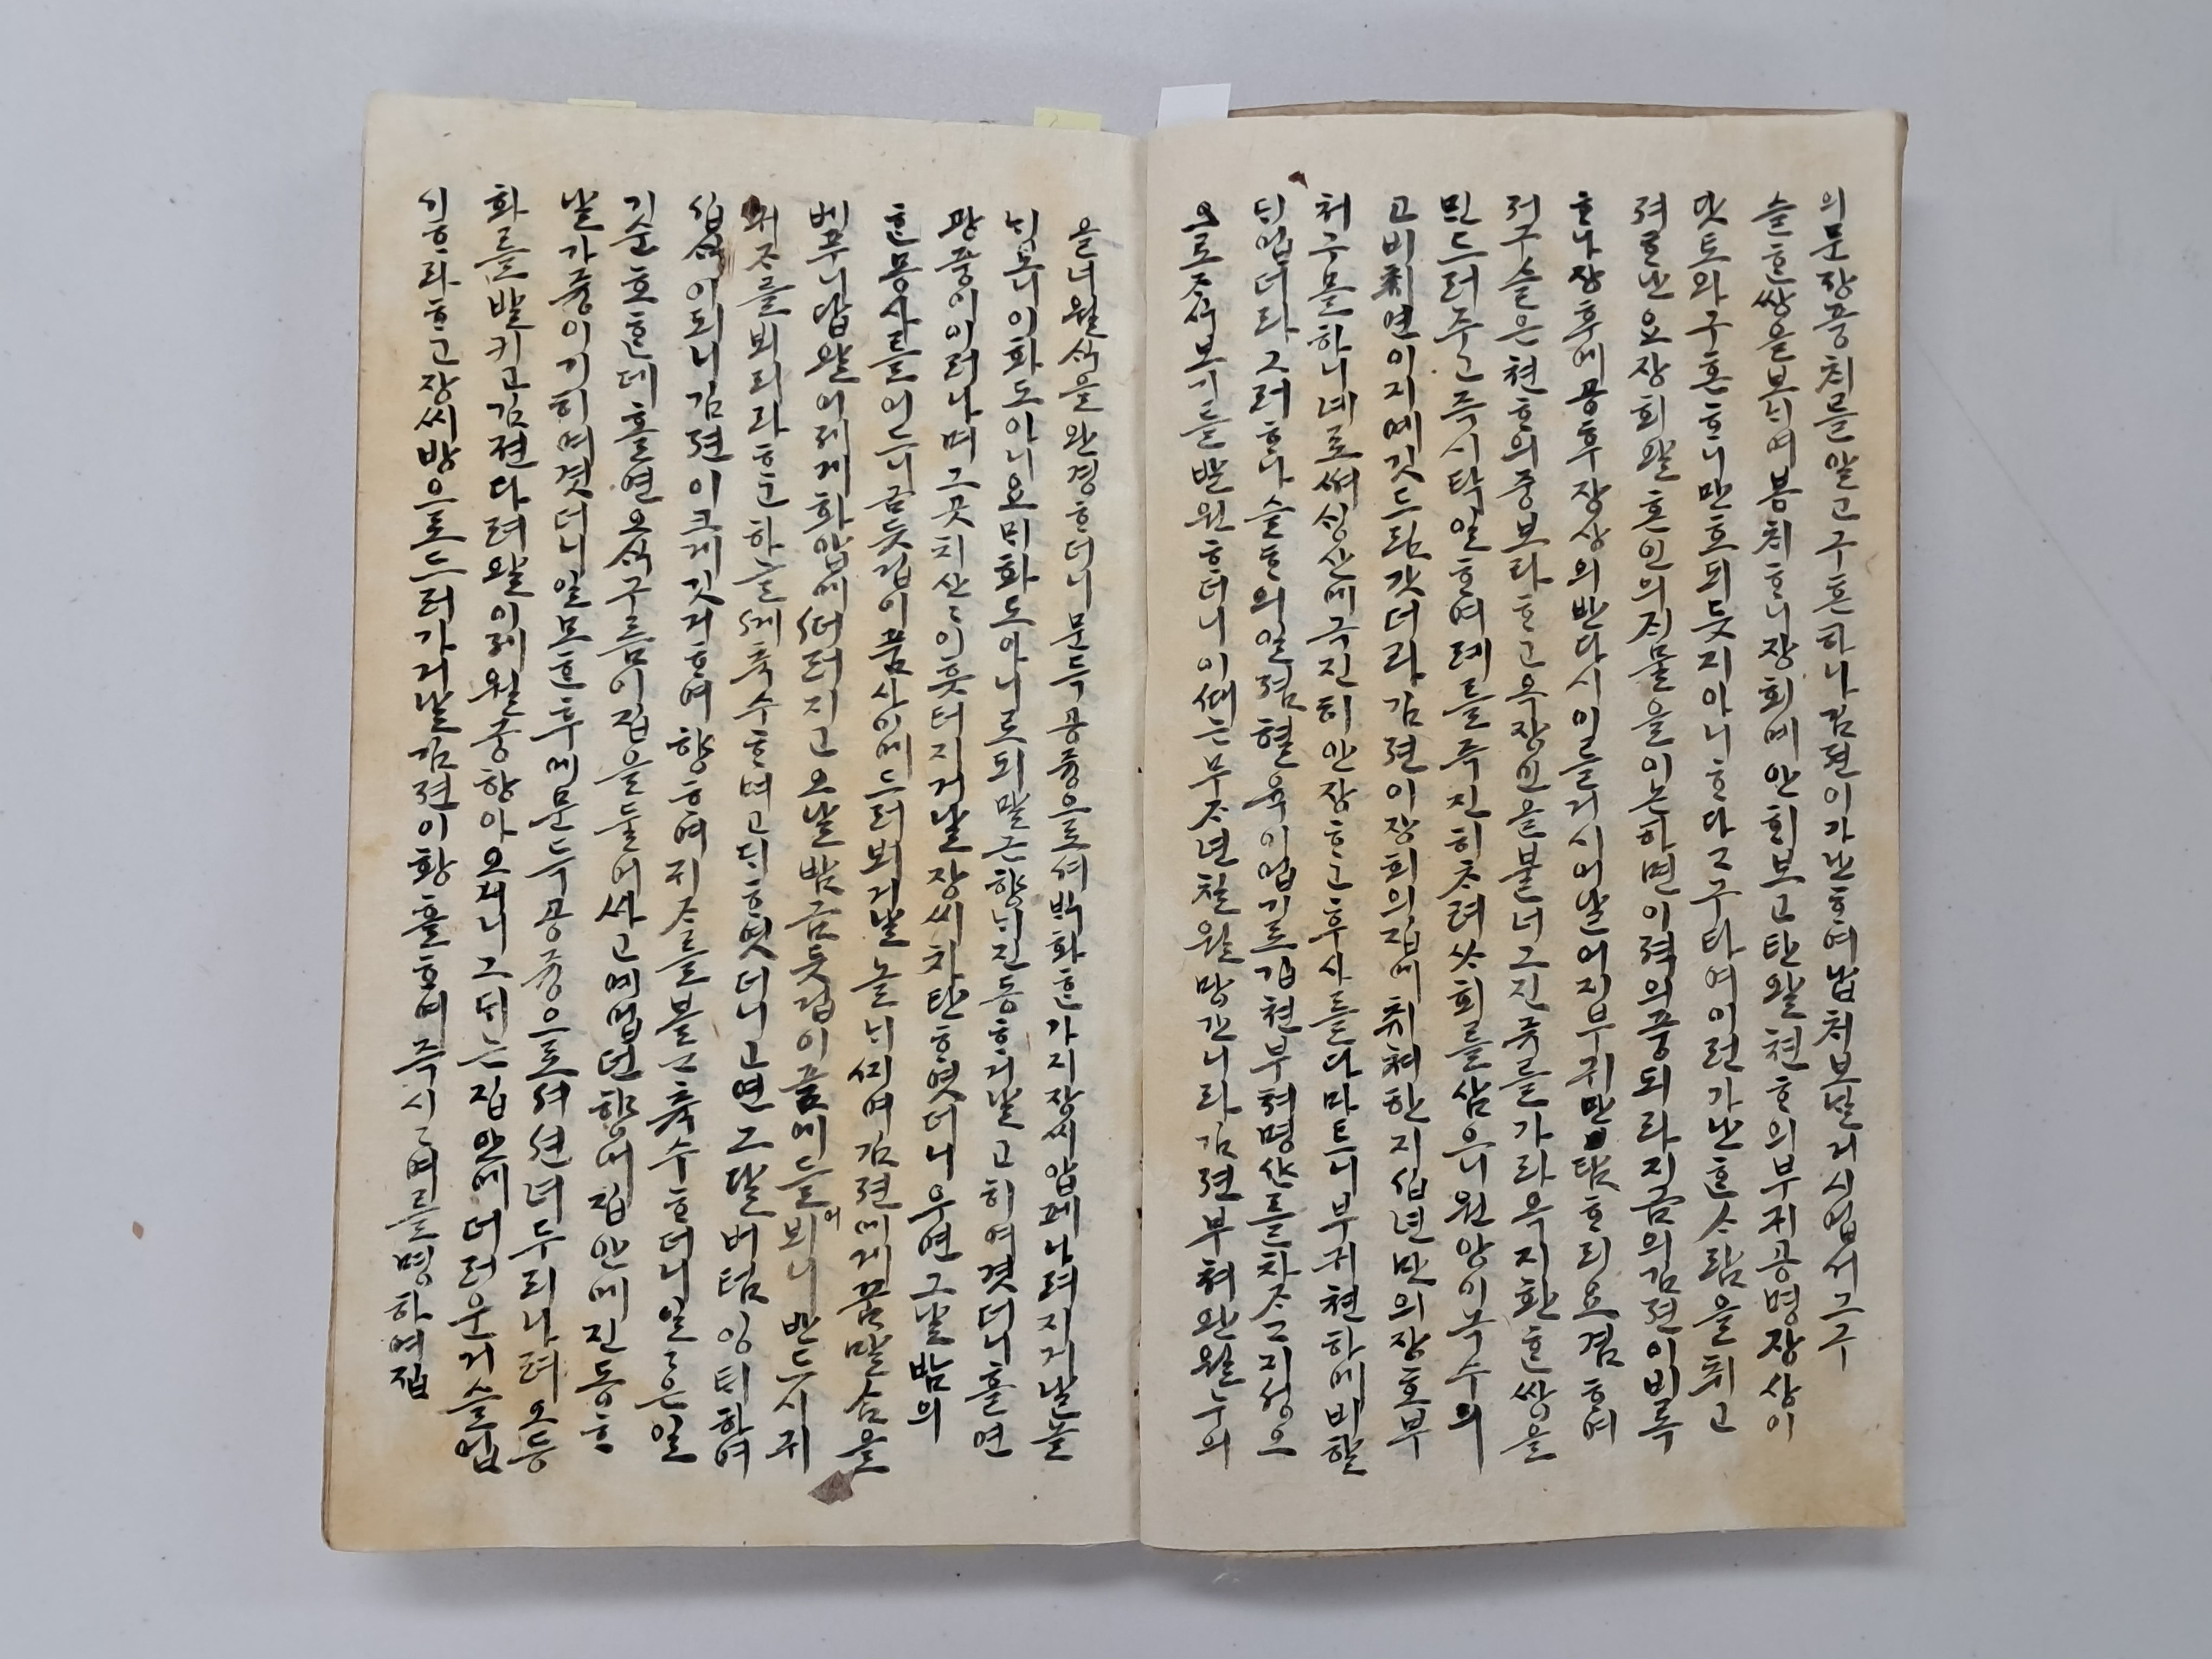 의문장풍치를알고구혼하나김젼이가난ᄒᆞ여납처보낼거시업서그구
슬ᄒᆞᆫ쌍을보ᄂᆡ여봉치ᄒᆞ니장회에안ᄒᆡ보고탄왈쳔ᄒᆞ의부귀공명장상이
닷토와구혼ᄒᆞ니만ᄒᆞ되듯지아니ᄒᆞ다그구타여이런가난ᄒᆞᆫᄉᆞ람을취코
져ᄒᆞ난요장회왈혼인의ᄌᆡ물을이논하면이젹의풍되라지금의김젼이비록
ᄒᆞ나장후에공후장상의반다시이를거시어날어지부귀만탐ᄒᆞ리요겸ᄒᆞ여
저구슬은쳔ᄒᆞ의중보라ᄒᆞ고옥장인을불너그진쥬를가라옥지환ᄒᆞᆫ쌍을
만드러주고즉시탁일ᄒᆞ여례를극진히ᄎᆞ려ᄉᆞ회를삼으니원앙이녹수의
고비취연이지에깃드림갓더라김젼이장회의집에취쳐한지십년만의장호부
처구몰하니녜로써싱산에극진히안장ᄒᆞ고후사를다마트니부귀쳔하에비할
ᄃᆡ업더라그러ᄒᆞ나슬ᄒᆞ의일졈혈육이업기로김젼부쳐명산를차ᄌᆞ지셩으
으로ᄌᆞ식보기를발원ᄒᆞ더니이ᄯᅢ는무ᄌᆞ년칠월망간니라김젼부쳐완월누의
올너월식을완경ᄒᆞ더니문득공즁으로셔박화ᄒᆞᆫ가지장씨압페나려지거날놀
ᄂᆡ보니이화도아니요ᄆᆡ화도아니로되말근향ᄂᆡ진동ᄒᆞ거날고히여겻더니홀연
광풍이이러나며그곳치산산이훗터지거날장씨차탄ᄒᆞ엿더니우연그날밤의
ᄒᆞᆫ몽사를어드니금듯겁이품사이에드러뵈거날놀ᄂᆡᄭᆡ여김젼에게꿈말슴을
베푸니답왈어제게화압에ᄯᅥ러지고오날밤금듯겁이품에들어뵈니반드시귀
ᄌᆞ를뵈리라ᄒᆞ고하늘ᄭᅦ축수ᄒᆞ며고ᄃᆡᄒᆞ엿더니고연그달버텀잉ᄐᆡ하여
십삭이되니김젼이크게깃거ᄒᆞ여향ᄒᆞ여귀ᄌᆞ를불근축수ᄒᆞ더니일일은일
기순ᄒᆞᄒᆞᆫ데홀연오ᄉᆡᆨ구름이집을둘어싸고예업던향ᄂᆡ집안에진동ᄒᆞ
날가즁이기히여겻더니일모ᄒᆞᆫ후에문득공중으로셔션녀두리나려오등
화를발키고김젼다려왈이제월궁항아오져니그ᄃᆡ는집안에더러운거슬업
시ᄒᆞ라ᄒᆞ고장씨방으로드러가거날김젼이황홀ᄒᆞ여즉시시녀를명하여집